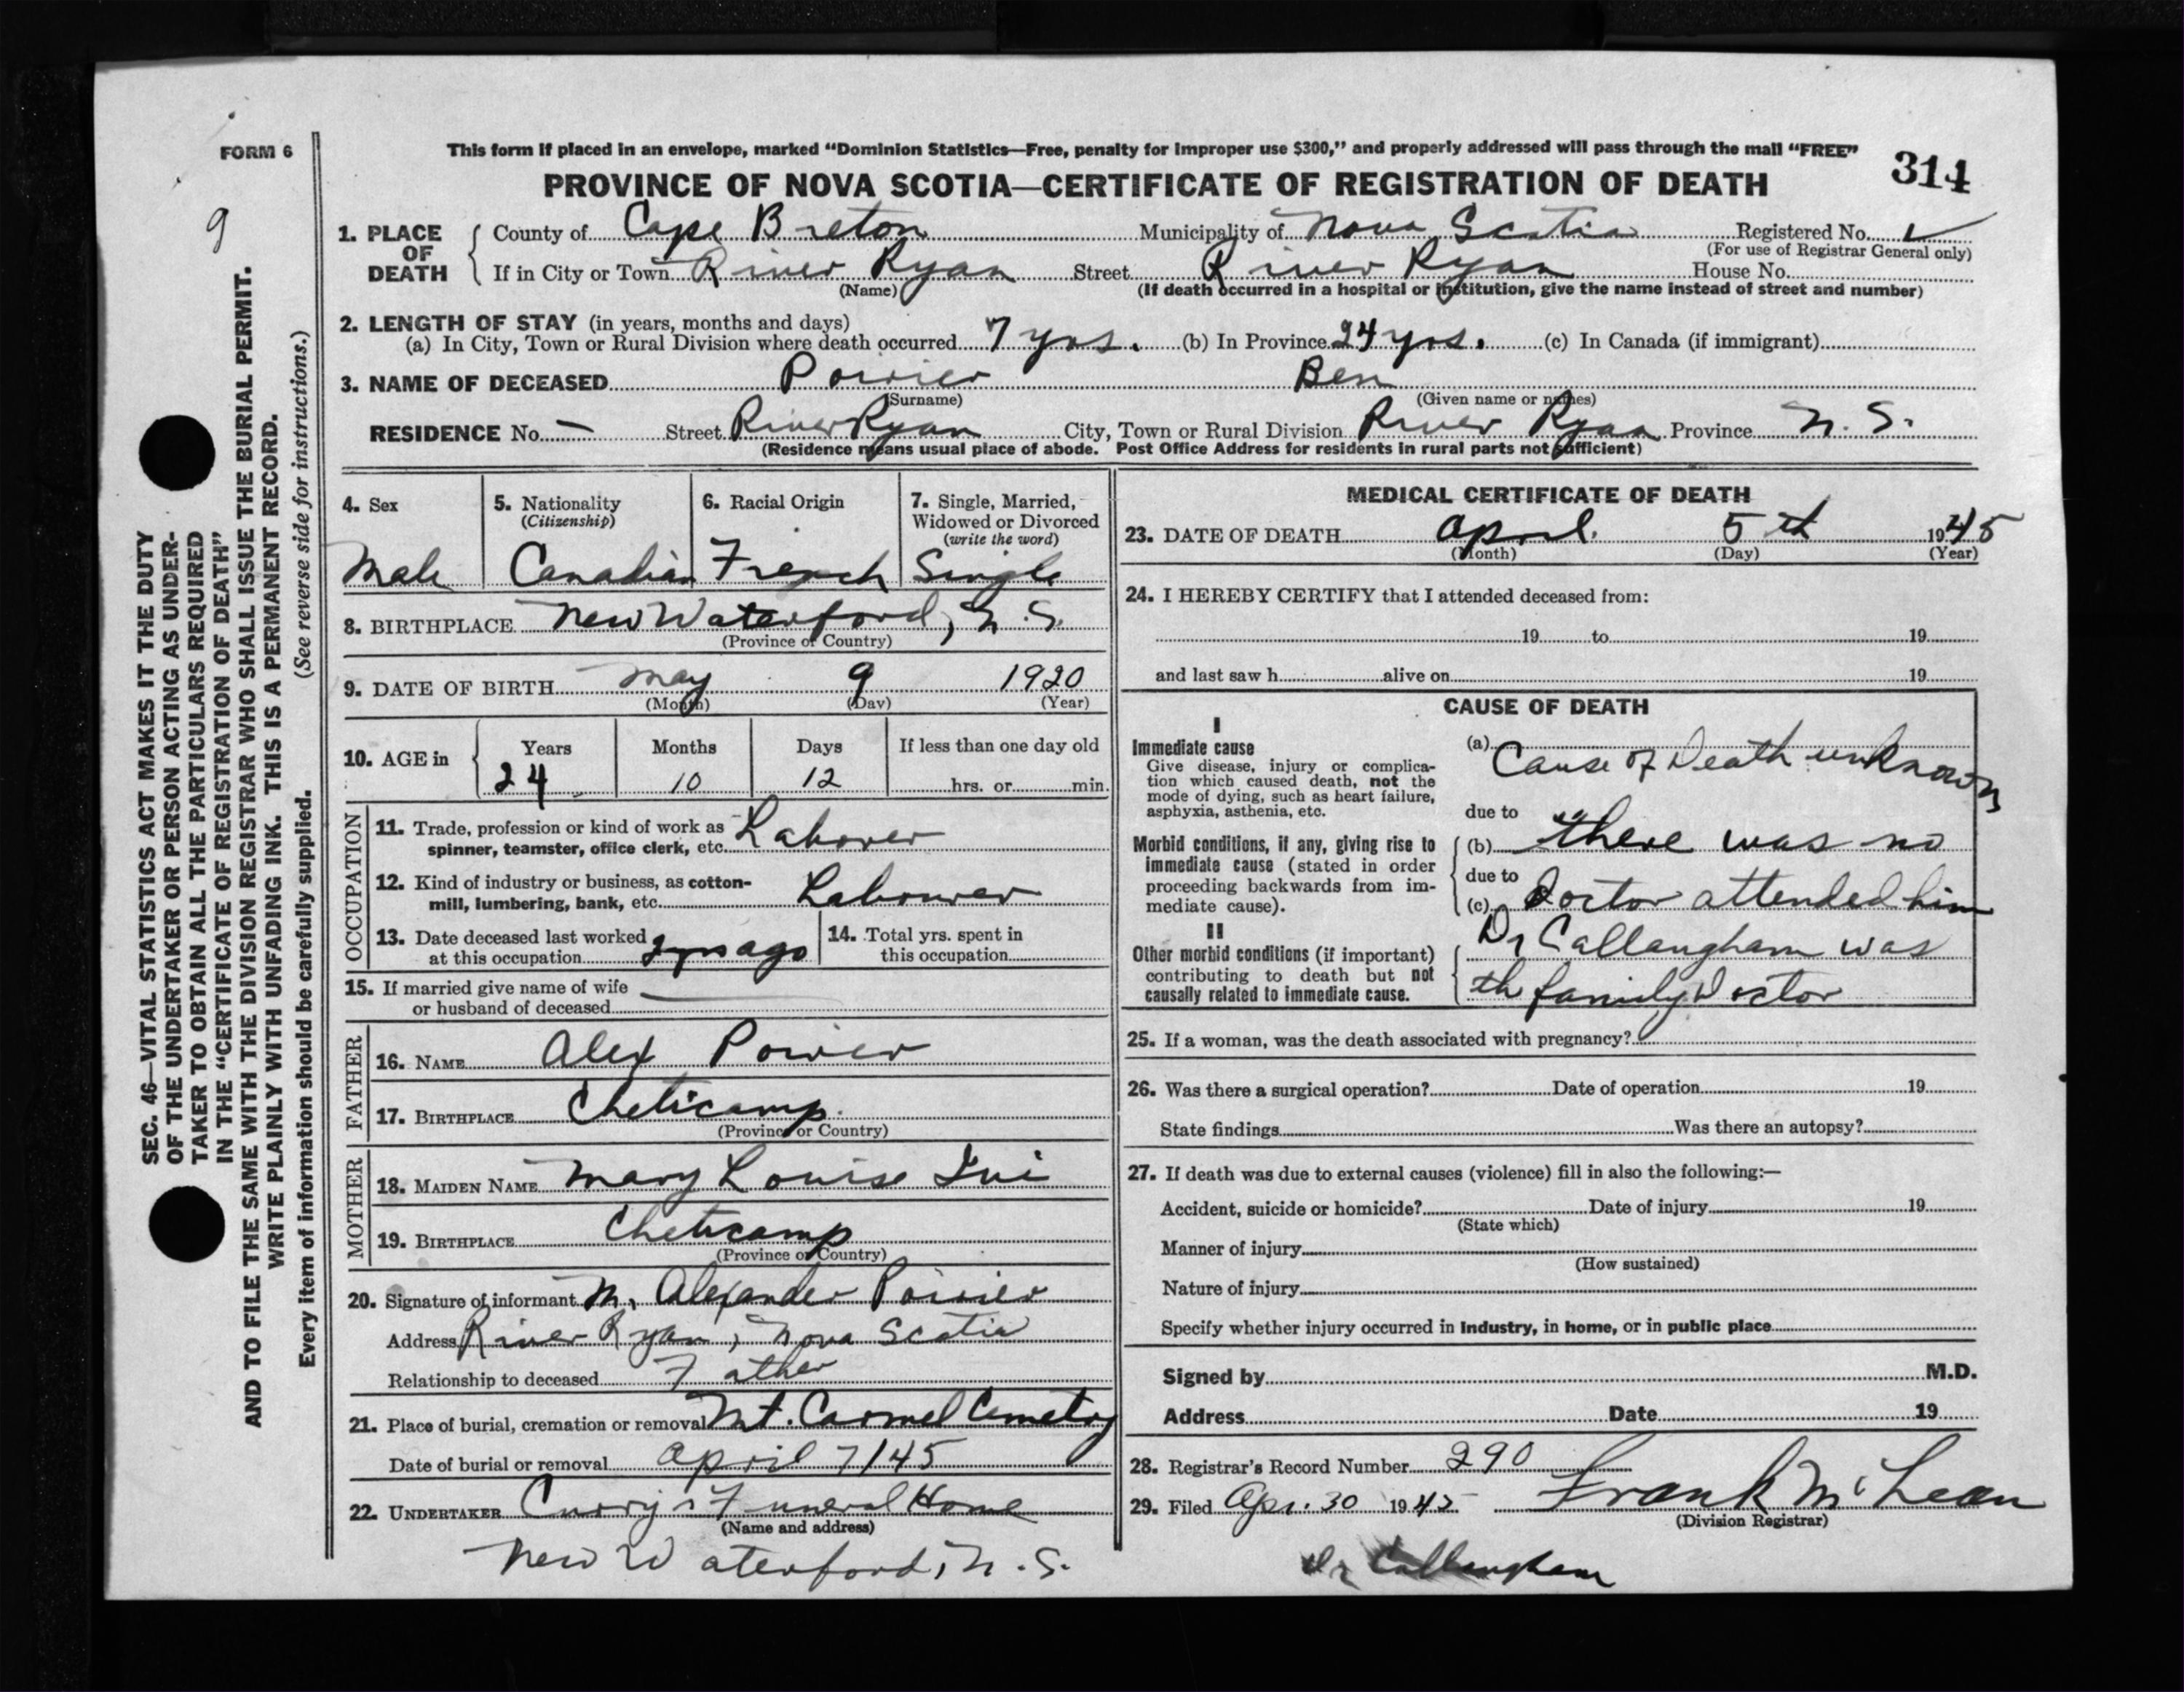 FORM 6
This form if placed in an envelope, marked "Dominion Statistics—Free, penalty for improper use $300," and properly addressed will pass through the mail "FREE"
314
PROVINCE OF NOVA SCOTIA—CERTIFICATE OF REGISTRATION OF DEATH
9
1. PLACE OF DEATH
County of Cape Breton Municipality of Nova Scotia Registered No.
(For use of Registrar General only)
If in City or Town River Ryan Street River Ryan House No.
(Name) (If death occurred in a hospital or institution, give the name instead of street and number)
2. LENGTH OF STAY (in years, months and days)
(a) In City, Town or Rural Division where death occurred 7 yrs. (b) In Province 24 yrs. (c) In Canada (if immigrant)
3. NAME OF DECEASED Poirier Ben
(Surname) (Given name or names)
RESIDENCE No. — Street River Ryan City, Town or Rural Division River Ryan Province N. S.
(Residence means usual place of abode. Post Office Address for residents in rural parts not sufficient)
4. Sex
Male
5. Nationality
(Citizenship)
Canadian
6. Racial Origin
French
7. Single, Married,
Widowed or Divorced
(write the word)
Single
8. BIRTHPLACE New Waterford, N.S.
(Province or Country)
9. DATE OF BIRTH May 9 1920
(Month) (Day) (Year)
10. AGE in
Years Months Days If less than one day old
24 10 12 hrs. or min.
OCCUPATION
11. Trade, profession or kind of work as
spinner, teamster, office clerk, etc. Laborer
12. Kind of industry or business, as cotton-
mill, lumbering, bank, etc. Labourer
13. Date deceased last worked
at this occupation ago
14. Total yrs. spent in
this occupation
15. If married give name of wife
or husband of deceased
FATHER
16. NAME Alex Poirier
17. BIRTHPLACE Cheticamp.
(Province or Country)
MOTHER
18. MAIDEN NAME Mary Louise
19. BIRTHPLACE Cheticamp
(Province or Country)
20. Signature of informant M. Alexander Poirier
Address River Ryan, Nova Scotia
Relationship to deceased Father
21. Place of burial, cremation or removal Mt. Carmel Cemetry
Date of burial or removal April 7/45
22. UNDERTAKER Curry's Funeral Home
(Name and address)
New Waterford, N.S.
MEDICAL CERTIFICATE OF DEATH
23. DATE OF DEATH April. 5th 1945
(Month) (Day) (Year)
24. I HEREBY CERTIFY that I attended deceased from:
19 to 19
and last saw h alive on 19
CAUSE OF DEATH
I
Immediate cause
Give disease, injury or complica-
tion which caused death, not the
mode of dying, such as heart failure,
asphyxia, asthenia, etc.
(a) Cause of Death unknown
due to
Morbid conditions, if any, giving rise to
immediate cause (stated in order
proceeding backwards from im-
mediate cause).
(b) there was no
due to
(c) Doctor attended him
II
Other morbid conditions (if important)
contributing to death but not
causally related to immediate cause.
Dr Callangham was
th family Doctor
25. If a woman, was the death associated with pregnancy?
26. Was there a surgical operation? Date of operation 19
State findings Was there an autopsy?
27. If death was due to external causes (violence) fill in also the following:—
Accident, suicide or homicide? Date of injury 19
(State which)
Manner of injury
(How sustained)
Nature of injury
Specify whether injury occurred in industry, in home, or in public place
Signed by M.D.
Address Date 19
28. Registrar's Record Number 290
29. Filed Apr. 30 1945 Frank McLean
(Division Registrar)
Dr Callangham
SEC. 46—VITAL STATISTICS ACT MAKES IT THE DUTY
OF THE UNDERTAKER OR PERSON ACTING AS UNDER-
TAKER TO OBTAIN ALL THE PARTICULARS REQUIRED
IN THE "CERTIFICATE OF REGISTRATION OF DEATH"
AND TO FILE THE SAME WITH THE DIVISION REGISTRAR WHO SHALL ISSUE THE BURIAL PERMIT.
WRITE PLAINLY WITH UNFADING INK. THIS IS A PERMANENT RECORD.
Every item of information should be carefully supplied. (See reverse side for instructions.)